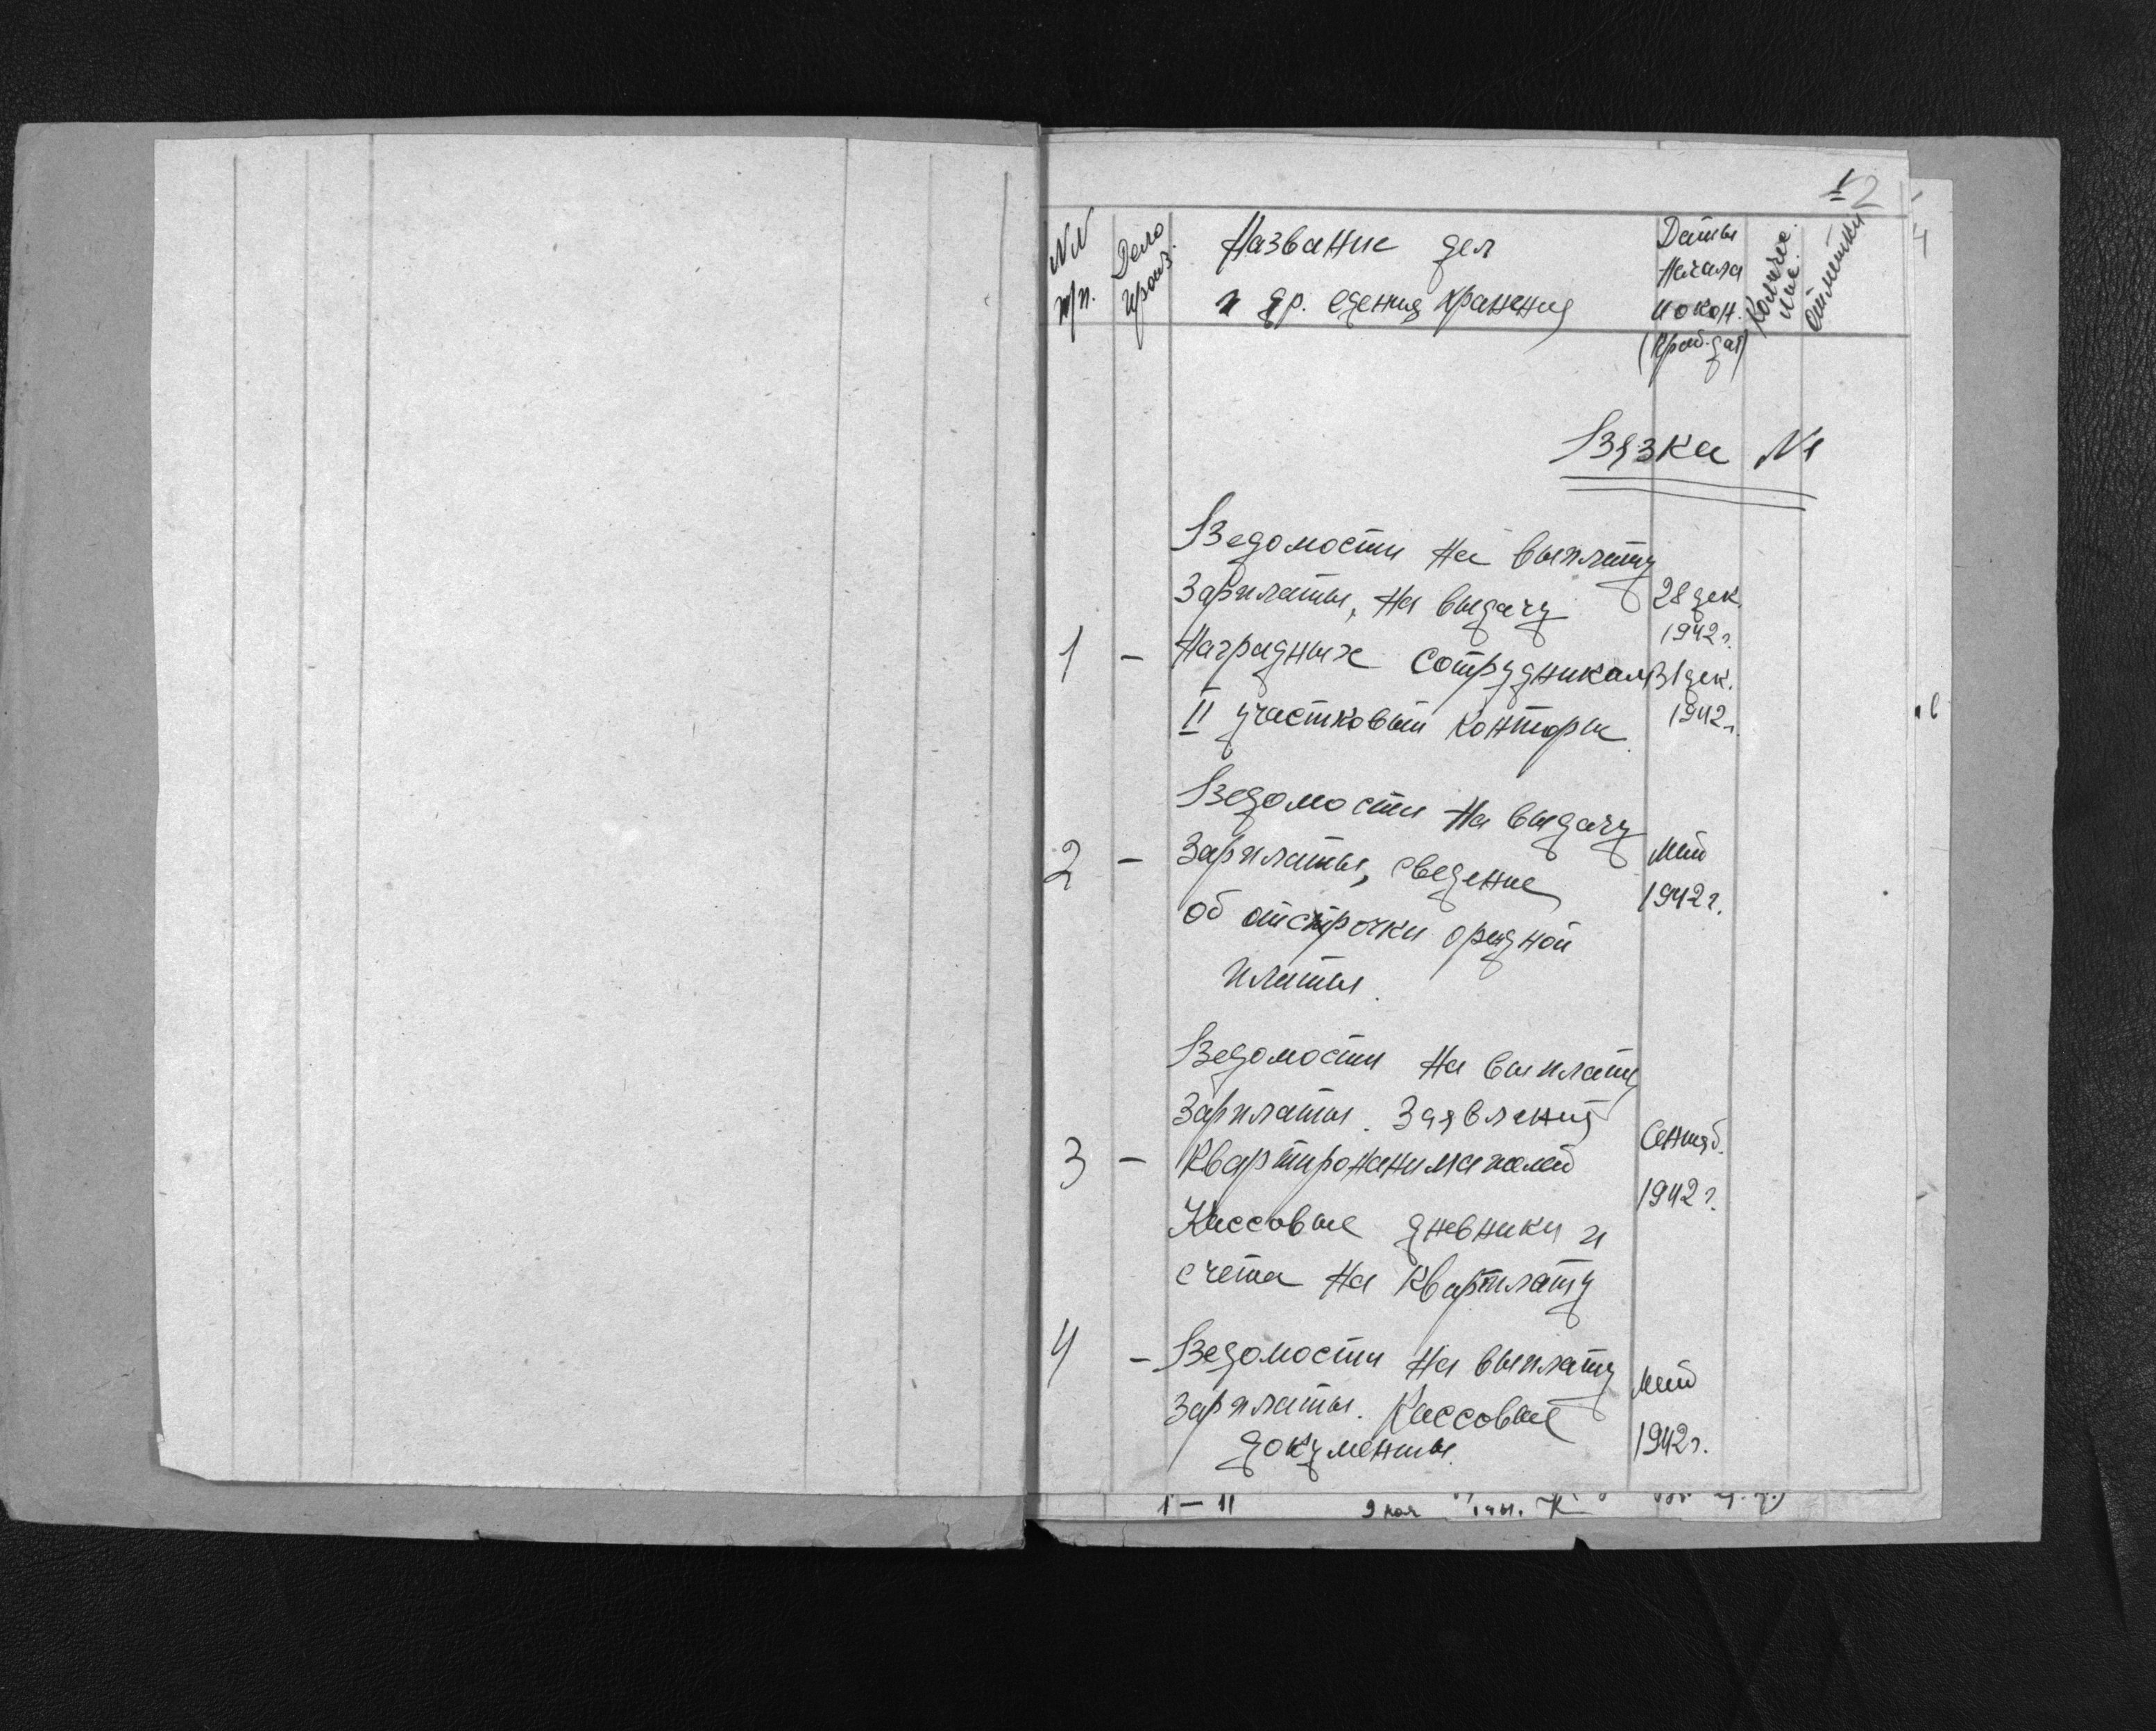 1 2
NN п/п.
Дело произ.
Название дел
и др. еденид хранения
Даты
начала
и окон.
Количе.
лис.
Отметки
Вязка N1
Ведомости на выплату
зарплаты, на выдачу
28 дек.
1942 г.
1 – наградных сотрудникам 31 дек.
II участковый конторы. 1942 г.
Ведомости на выдачу
2 – зарплаты, сведение май
об отстрочки орендной 1942 г.
платы.
Ведомости на выплату
зарплаты. Заявления
3 – квартиронанимателей Сентяб.
1942 г.
Кассовые дневники и
счета на квартплату
4 – Ведомости на выплату
зарплаты. Кассовые май
документы. 1942 г.
1 – 11